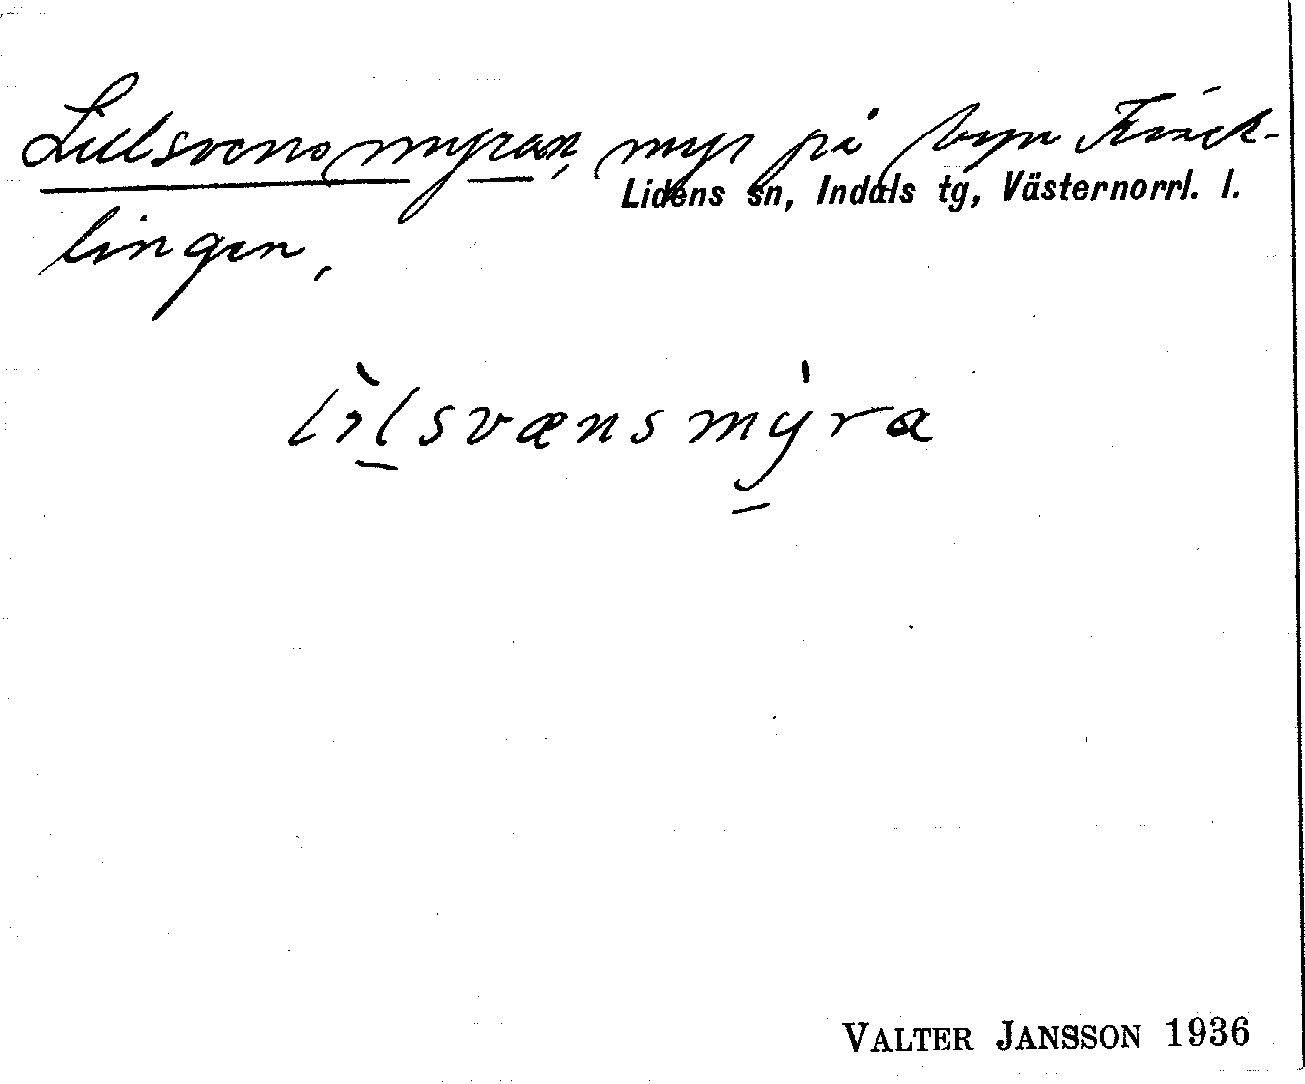 Lillsvensmyran, myr på byn Kväck-
Lidens sn, Indals tg, Västernorrl. l.
lingen,
lìl̠svænsmý̠ra
VALTER JANSSON 1936